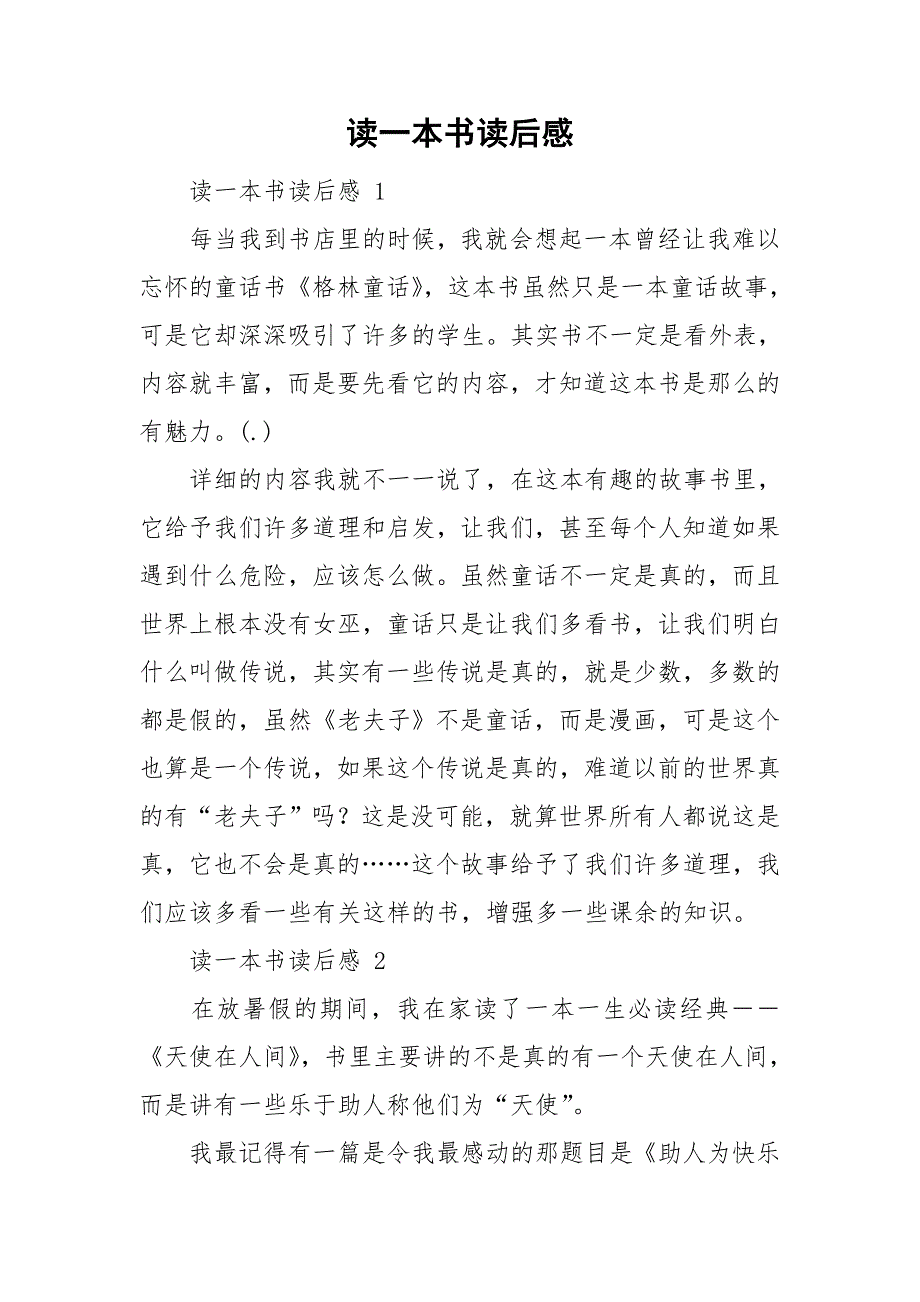 读一本书读后感
读一本书读后感 1
每当我到书店里的时候，我就会想起一本曾经让我难以
忘怀的童话书《格林童话》，这本书虽然只是一本童话故事，
可是它却深深吸引了许多的学生。其实书不一定是看外表，
内容就丰富，而是要先看它的内容，才知道这本书是那么的
有魅力。(.)
详细的内容我就不一一说了，在这本有趣的故事书里，
它给予我们许多道理和启发，让我们，甚至每个人知道如果
遇到什么危险，应该怎么做。虽然童话不一定是真的，而且
世界上根本没有女巫，童话只是让我们多看书，让我们明白
什么叫做传说，其实有一些传说是真的，就是少数，多数的
都是假的，虽然《老夫子》不是童话，而是漫画，可是这个
也算是一个传说，如果这个传说是真的，难道以前的世界真
的有“老夫子”吗？这是没可能，就算世界所有人都说这是
真，它也不会是真的……这个故事给予了我们许多道理，我
们应该多看一些有关这样的书，增强多一些课余的知识。
读一本书读后感 2
在放暑假的期间，我在家读了一本一生必读经典――
《天使在人间》，书里主要讲的不是真的有一个天使在人间，
而是讲有一些乐于助人称他们为“天使”。
我最记得有一篇是令我最感动的那题目是《助人为快乐